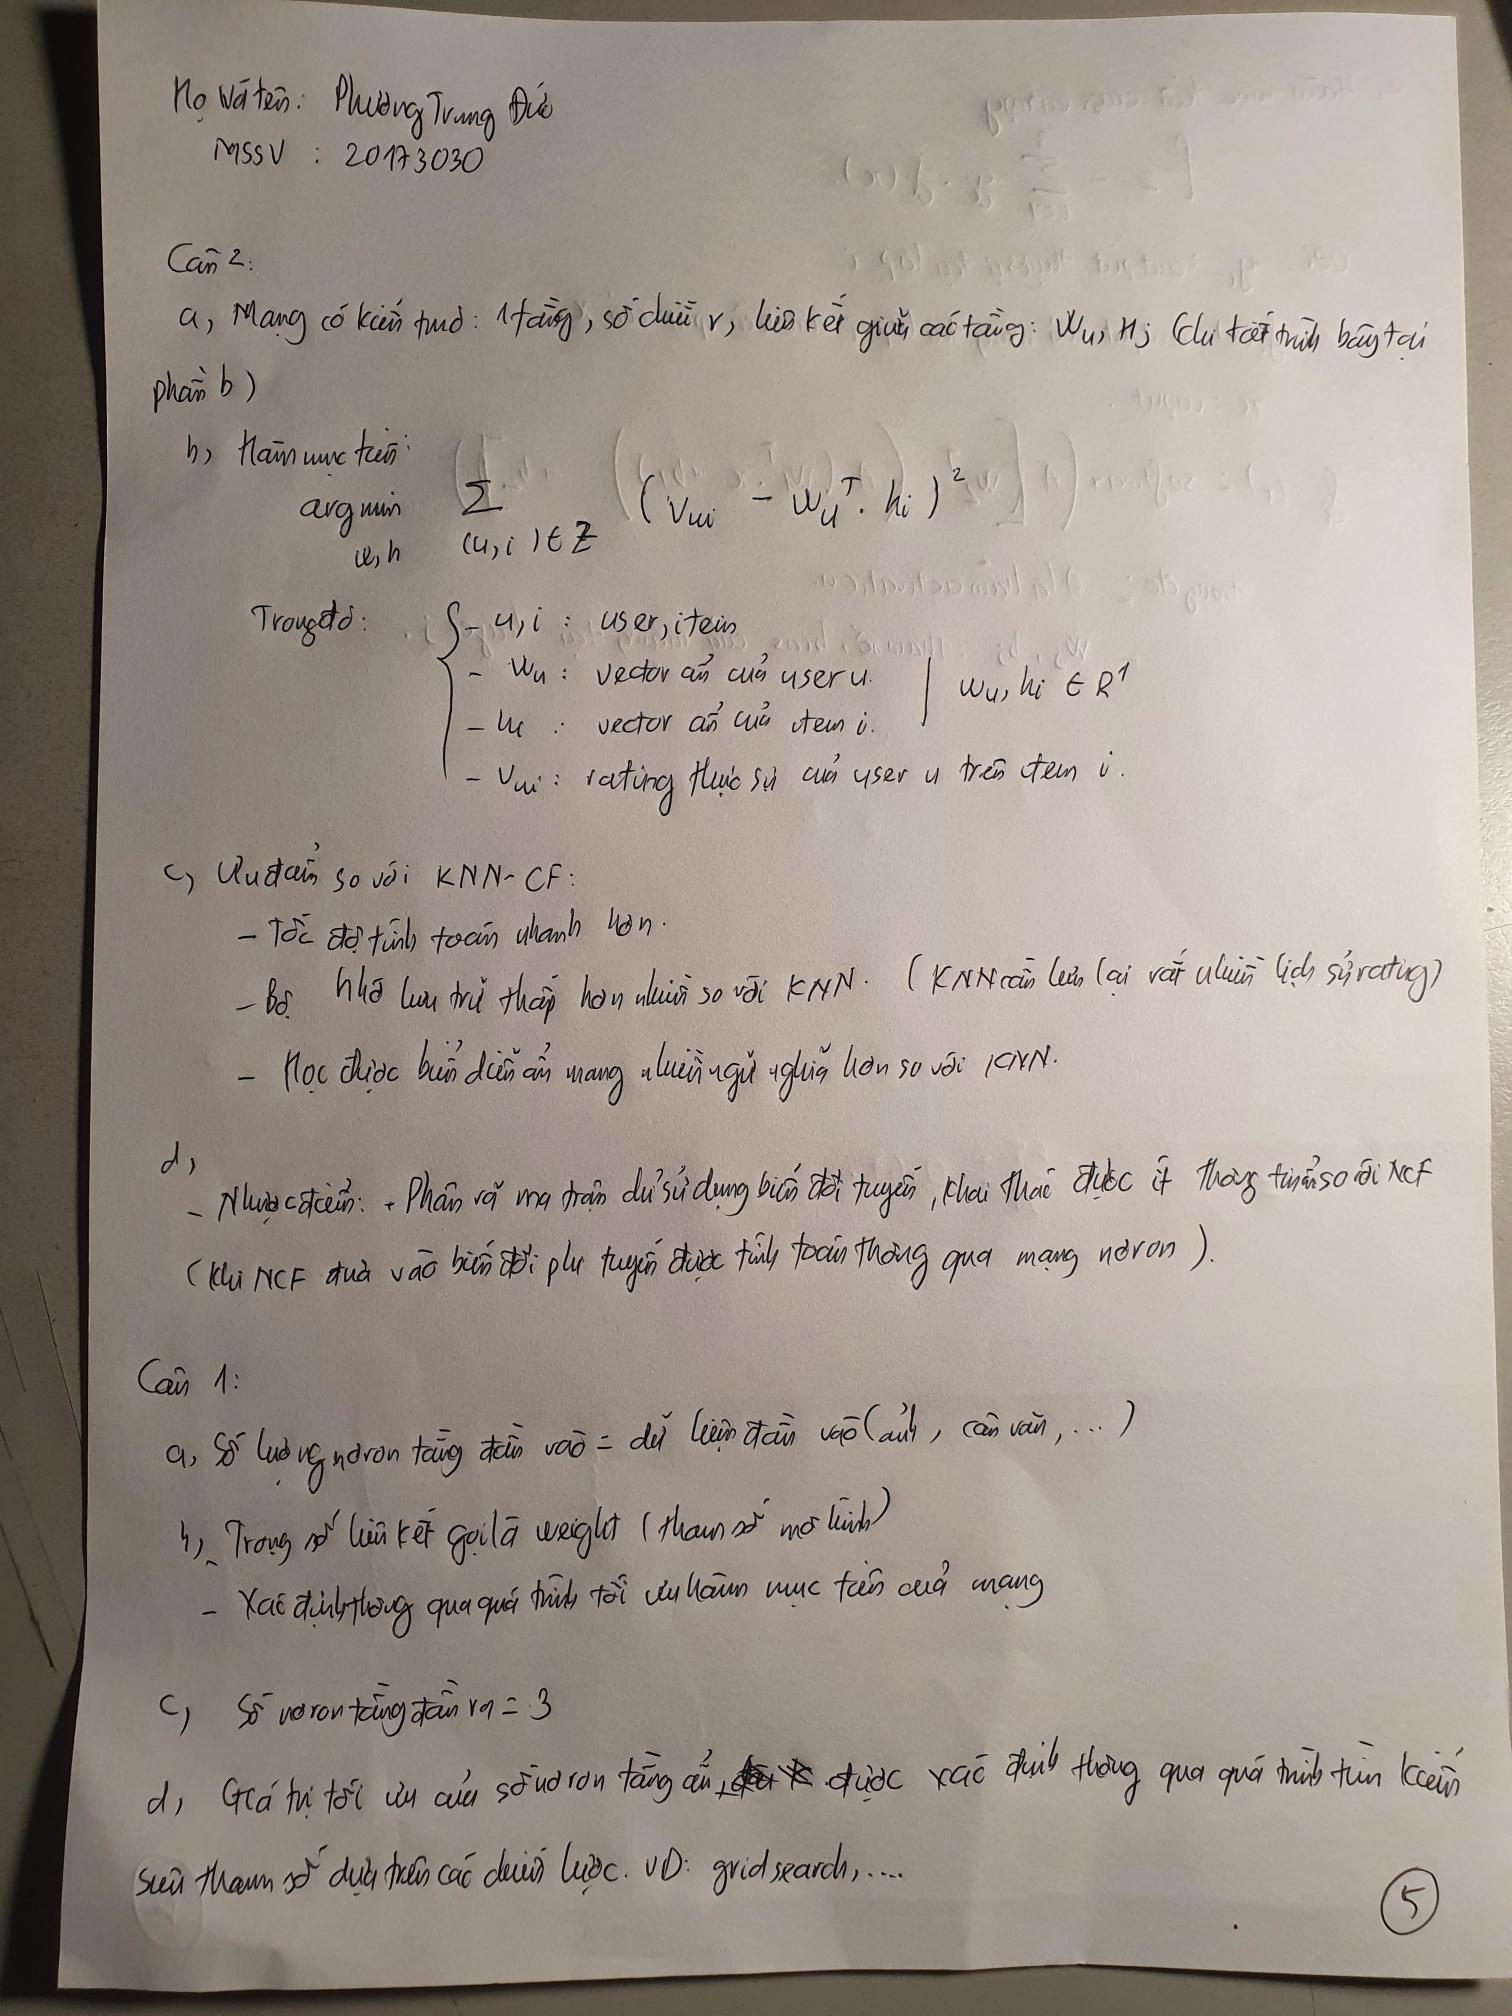 Họ và tên: Phương Trung Đức
MSSV : 20173030
Câu 2:
a, Mạng có kiến trúc: 1 tầng, số chiều r, liên kết giữa các tầng: Wu, Hj (chi tiết trình bày tại
phần b)
b, Hàm mục tiêu:
arg min Σ (vui - wuᵀ. hi)²
w,h (u,i) ∈ Z
Trong đó: { - u, i : user, item
- wu : vector ẩn của user u. | wu, hi ∈ R¹
- hi : vector ẩn của item i.
- vui : rating thực sự của user u trên item i.
c, Ưu điểm so với KNN-CF:
- Tốc độ tính toán nhanh hơn.
- Bộ nhớ lưu trữ thấp hơn nhiều so với KNN. (KNN cần lưu lại rất nhiều lịch sử rating)
- Học được biểu diễn ẩn mang nhiều ngữ nghĩa hơn so với KNN.
d,
- Nhược điểm: + Phân rã ma trận chỉ sử dụng biến đổi tuyến, khai thác được ít thông tin so với NCF
(khi NCF dựa vào biến đổi phi tuyến được tính toán thông qua mạng nơron).
Câu 1:
a, Số lượng nơron tầng đầu vào = dữ liệu đầu vào (ảnh, câu văn, ...)
b, - Trọng số liên kết gọi là weight (tham số mô hình)
- Xác định thông qua quá trình tối ưu hàm mục tiêu của mạng
c, Số nơron tầng đầu ra = 3
d, Giá trị tối ưu của số nơron tầng ẩn, được xác định thông qua quá trình tìm kiếm
siêu tham số dựa trên các chiến lược. VD: grid search, ....
5